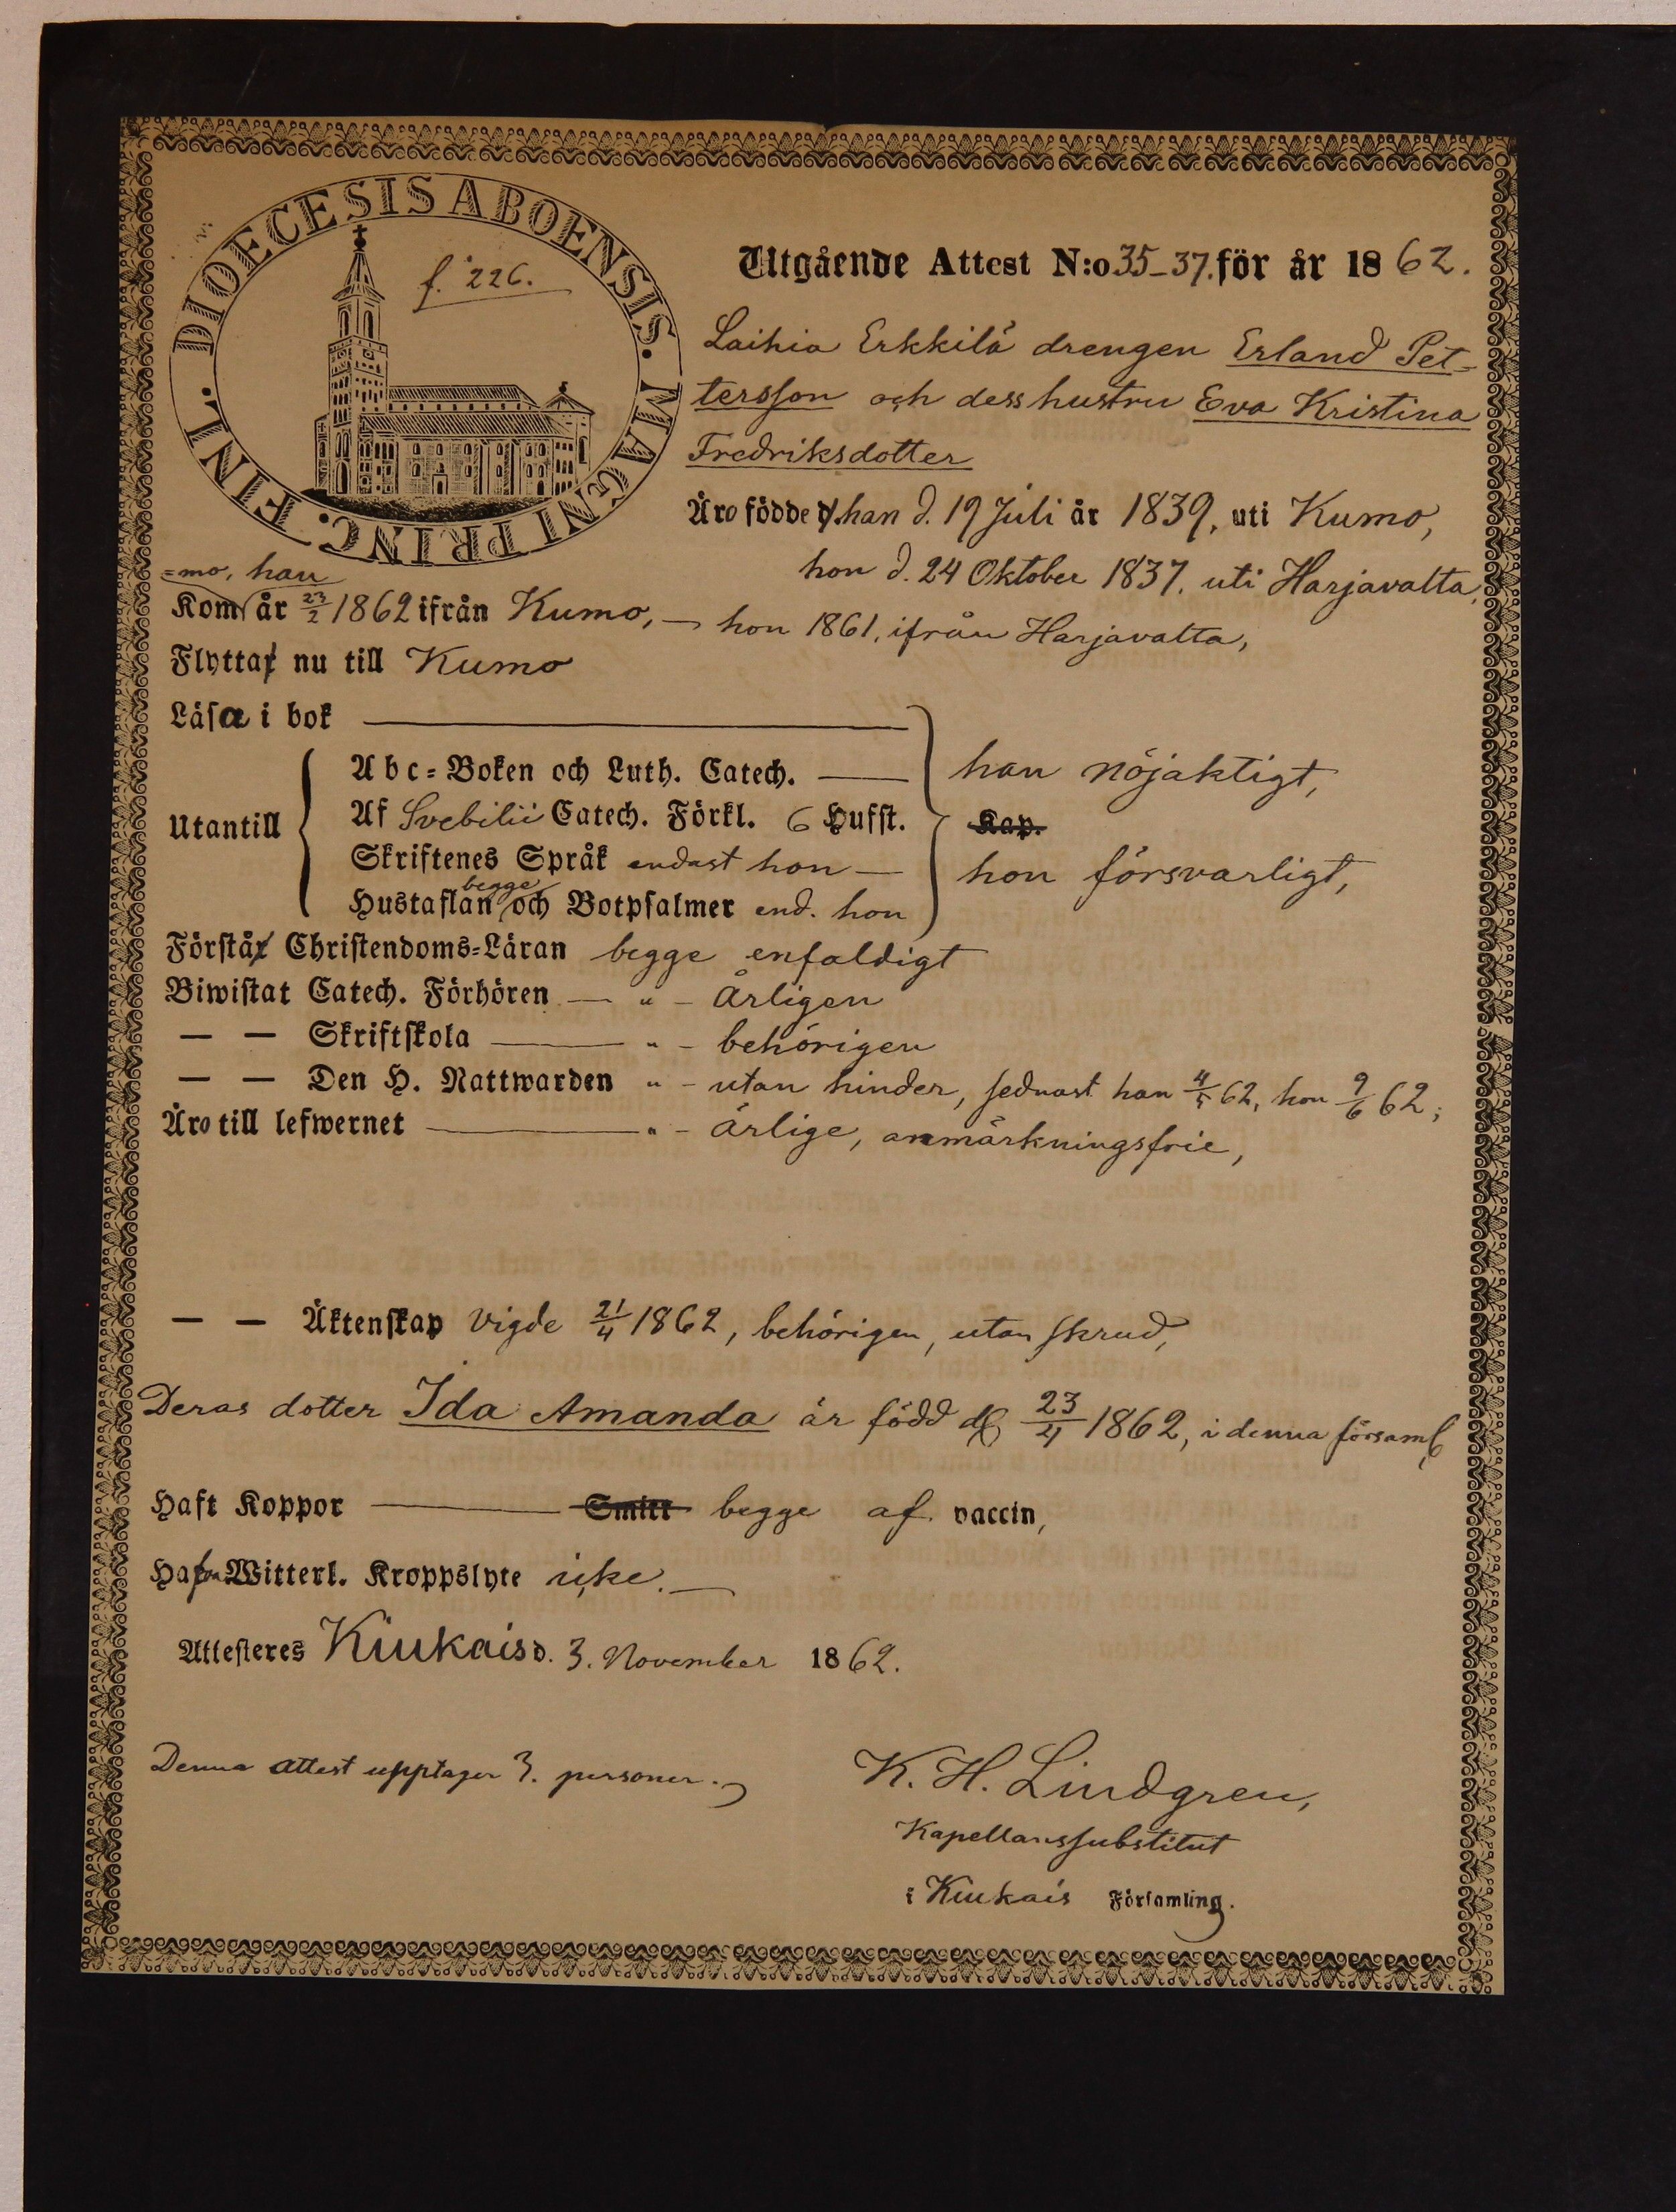 DIOECESIS ABOENSIS. MAGNI PRINC. FINL.
f. 226.
Utgående Attest N:o 35-37. för år 1862.
Laihia Erkkilä drengen Erland Pet-
tersson och dess hustru Eva Kristina
Fredriksdotter
Äro födde han d. 19 Juli år 1839, uti Kumo,
hon d. 24 Oktober 1837. uti Harjavalta,
=mo, han
Kom år 23/2 1862 ifrån Kumo, — hon 1861, ifrån Harjavalta,
Flytta nu till Kumo
Läsa i bok
Abc-Boken och Luth. Catech. — han nöjaktigt,
Utantill Af Svebilii Catech. Förkl. 6 Hufst. Kap.
Skriftenes Språk endast hon — hon försvarligt,
begge
Hustaflan och Botpsalmer end. hon
Förstå Christendoms-Läran begge enfaldigt
Biwistat Catech. Förhören — " - årligen
— — Skriftskola — " - behörigen
— — Den H. Nattwarden " - utan hinder, sednast han 4/5 62, hon 9/6 62;
Äro till lefwernet — " - ärlige, anmärkningsfrie,
— — Äktenskap vigde 21/4 1862, behörigen, utan skrud,
Deras dotter Ida Amanda är född d 23/4 1862, i denna församl
Haft Koppor — Smitt begge af vaccin,
Hafva Witterl. Kroppslyte icke. —
Attesteres Kiukais d. 3. November 1862.
Denna attest upptager 3. personer.
K. H. Lindgren,
Kapellanssubstitut
i Kiukais Församling.